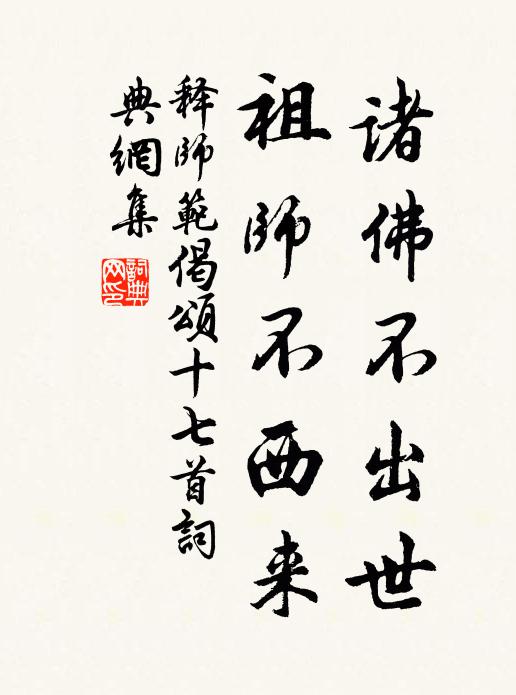 诸佛不出世
祖师不西来
释师範偈頌十七首詞
典網集
詞典
网印